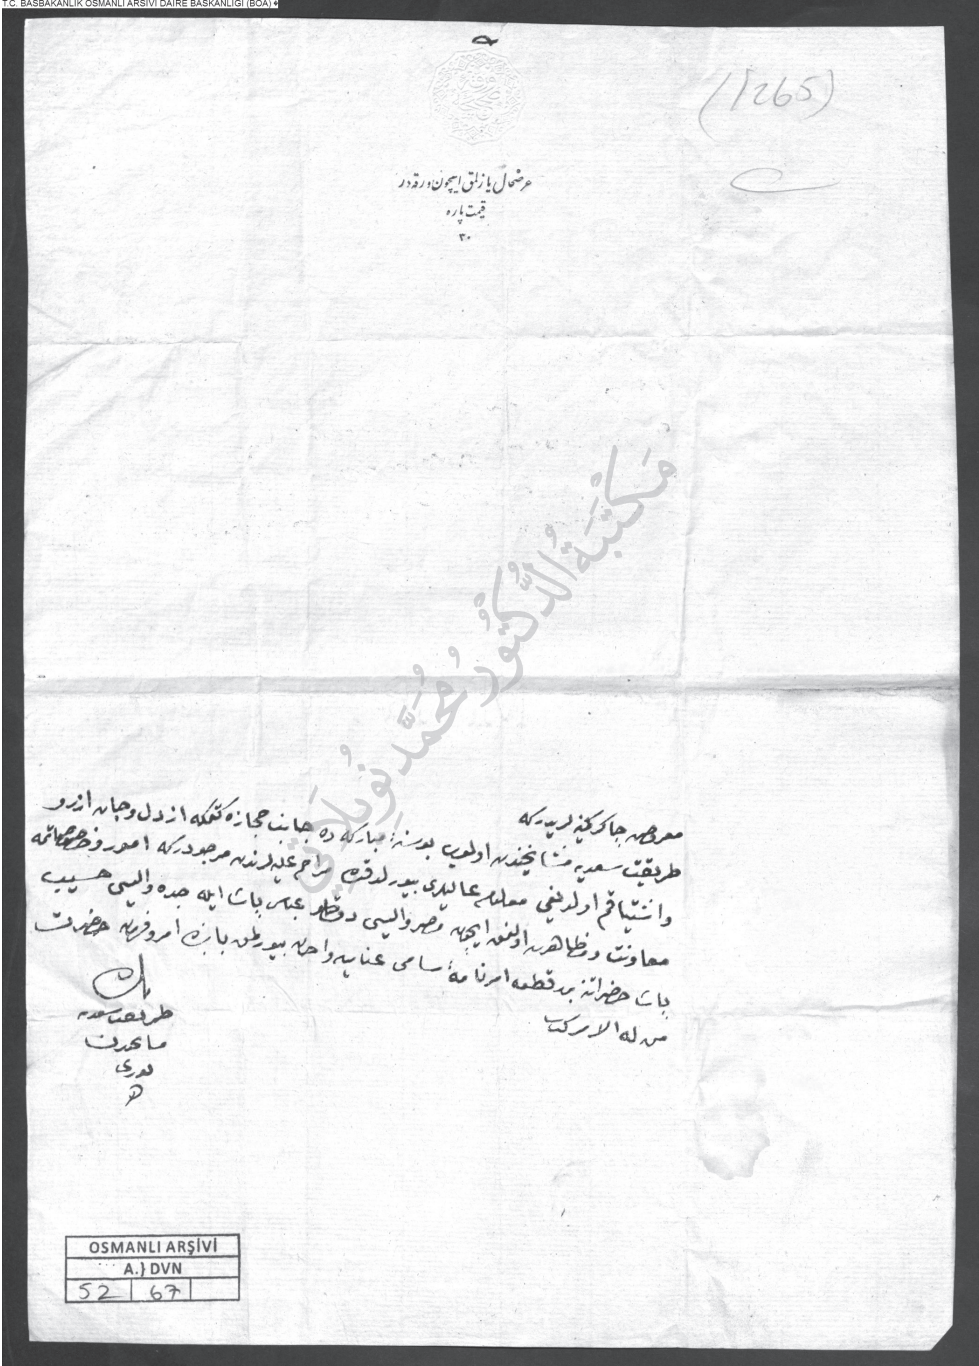 T.C. BAŞBAKANLIK OSMANLI ARŞİVİ DAİRE BAŞKANLIĞI (BOA)
(1265)
عرضحال يازلمق ايچون ورقه در
قيمت پاره
٣٠
مَكْتَبَةُ الدُّكْتُورُ مُحَمَّد
معروض چاكر كمينه لريدركه
طريقت سعديه مشايخندن اولوب بو سنهٔ مباركه ده جانب حجازه كتمكه از دل و جان ارزو
واشتياقم اولديغى معلوم عاليلرى بيورلدقده مراحم عليه لرندن مرجودركه امور و خصوصاتمه
معاونت ومظاهرت اولنمق ايچون مصر واليسى دولتلو عباس پاشا ايله جده واليسى حسيب
پاشا حضراتنه بر قطعه امرنامهٔ سامى عنايت واحسان بيورلمق بابنده امر و فرمان حضرت
من له الامركدر
بنده
طريقت سعديه
مشايخندن
نورى
OSMANLI ARŞİVİ
A.} DVN
52 67